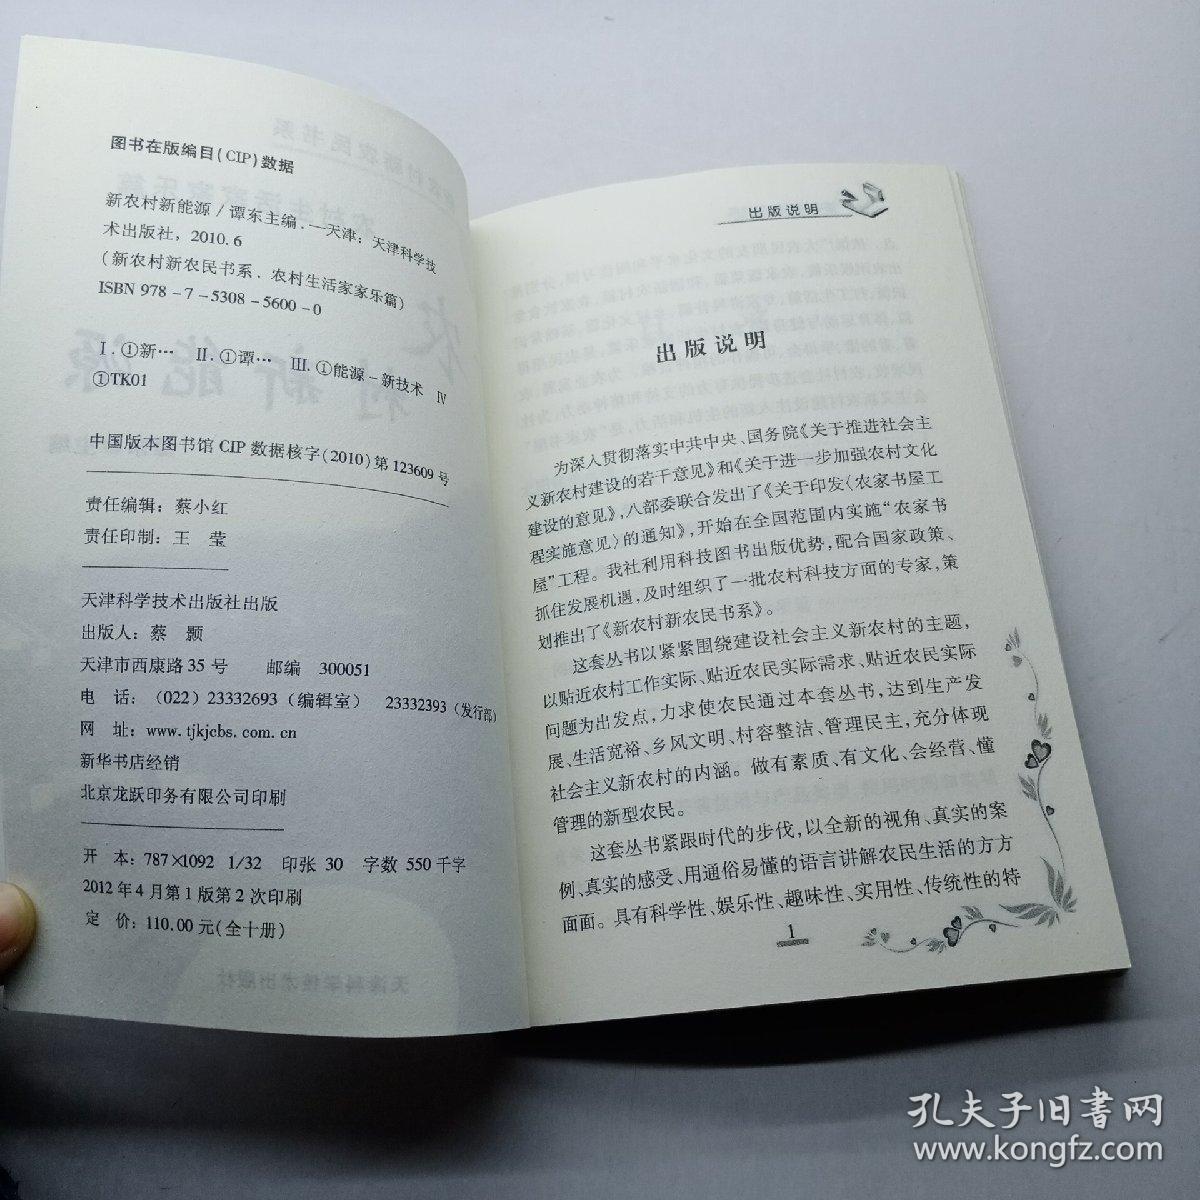 图书在版编目(CIP)数据
新农村新能源/谭东主编.—天津：天津科学技
术出版社，2010.6
(新农村新农民书系．农村生活家家乐篇)
ISBN 978-7-5308-5600-0
Ⅰ.①新… Ⅱ.①谭… Ⅲ.①能源-新技术 Ⅳ
①TK01
中国版本图书馆CIP数据核字(2010)第123609号
责任编辑：蔡小红
责任印制：王 莹
天津科学技术出版社出版
出版人：蔡 颢
天津市西康路35号 邮编 300051
电 话：(022)23332693(编辑室) 23332393(发行部)
网 址：www.tjkjcbs.com.cn
新华书店经销
北京龙跃印务有限公司印刷
开 本：787×1092 1/32 印张 30 字数 550千字
2012年4月第1版第2次印刷
定 价：110.00元(全十册)
出版说明
出版说明
为深入贯彻落实中共中央、国务院《关于推进社会主
义新农村建设的若干意见》和《关于进一步加强农村文化
建设的意见》，八部委联合发出了《关于印发〈农家书屋工
程实施意见〉的通知》，开始在全国范围内实施“农家书
屋”工程。我社利用科技图书出版优势，配合国家政策、
抓住发展机遇，及时组织了一批农村科技方面的专家，策
划推出了《新农村新农民书系》。
这套丛书以紧紧围绕建设社会主义新农村的主题，
以贴近农村工作实际、贴近农民实际需求、贴近农民实际
问题为出发点，力求使农民通过本套丛书，达到生产发
展、生活宽裕、乡风文明、村容整洁、管理民主，充分体现
社会主义新农村的内涵。做有素质、有文化、会经营、懂
管理的新型农民。
这套丛书紧跟时代的步伐，以全新的视角、真实的案
例、真实的感受、用通俗易懂的语言讲解农民生活的方方
面面。具有科学性、娱乐性、趣味性、实用性、传统性的特
1
孔夫子旧书网
www.kongfz.com